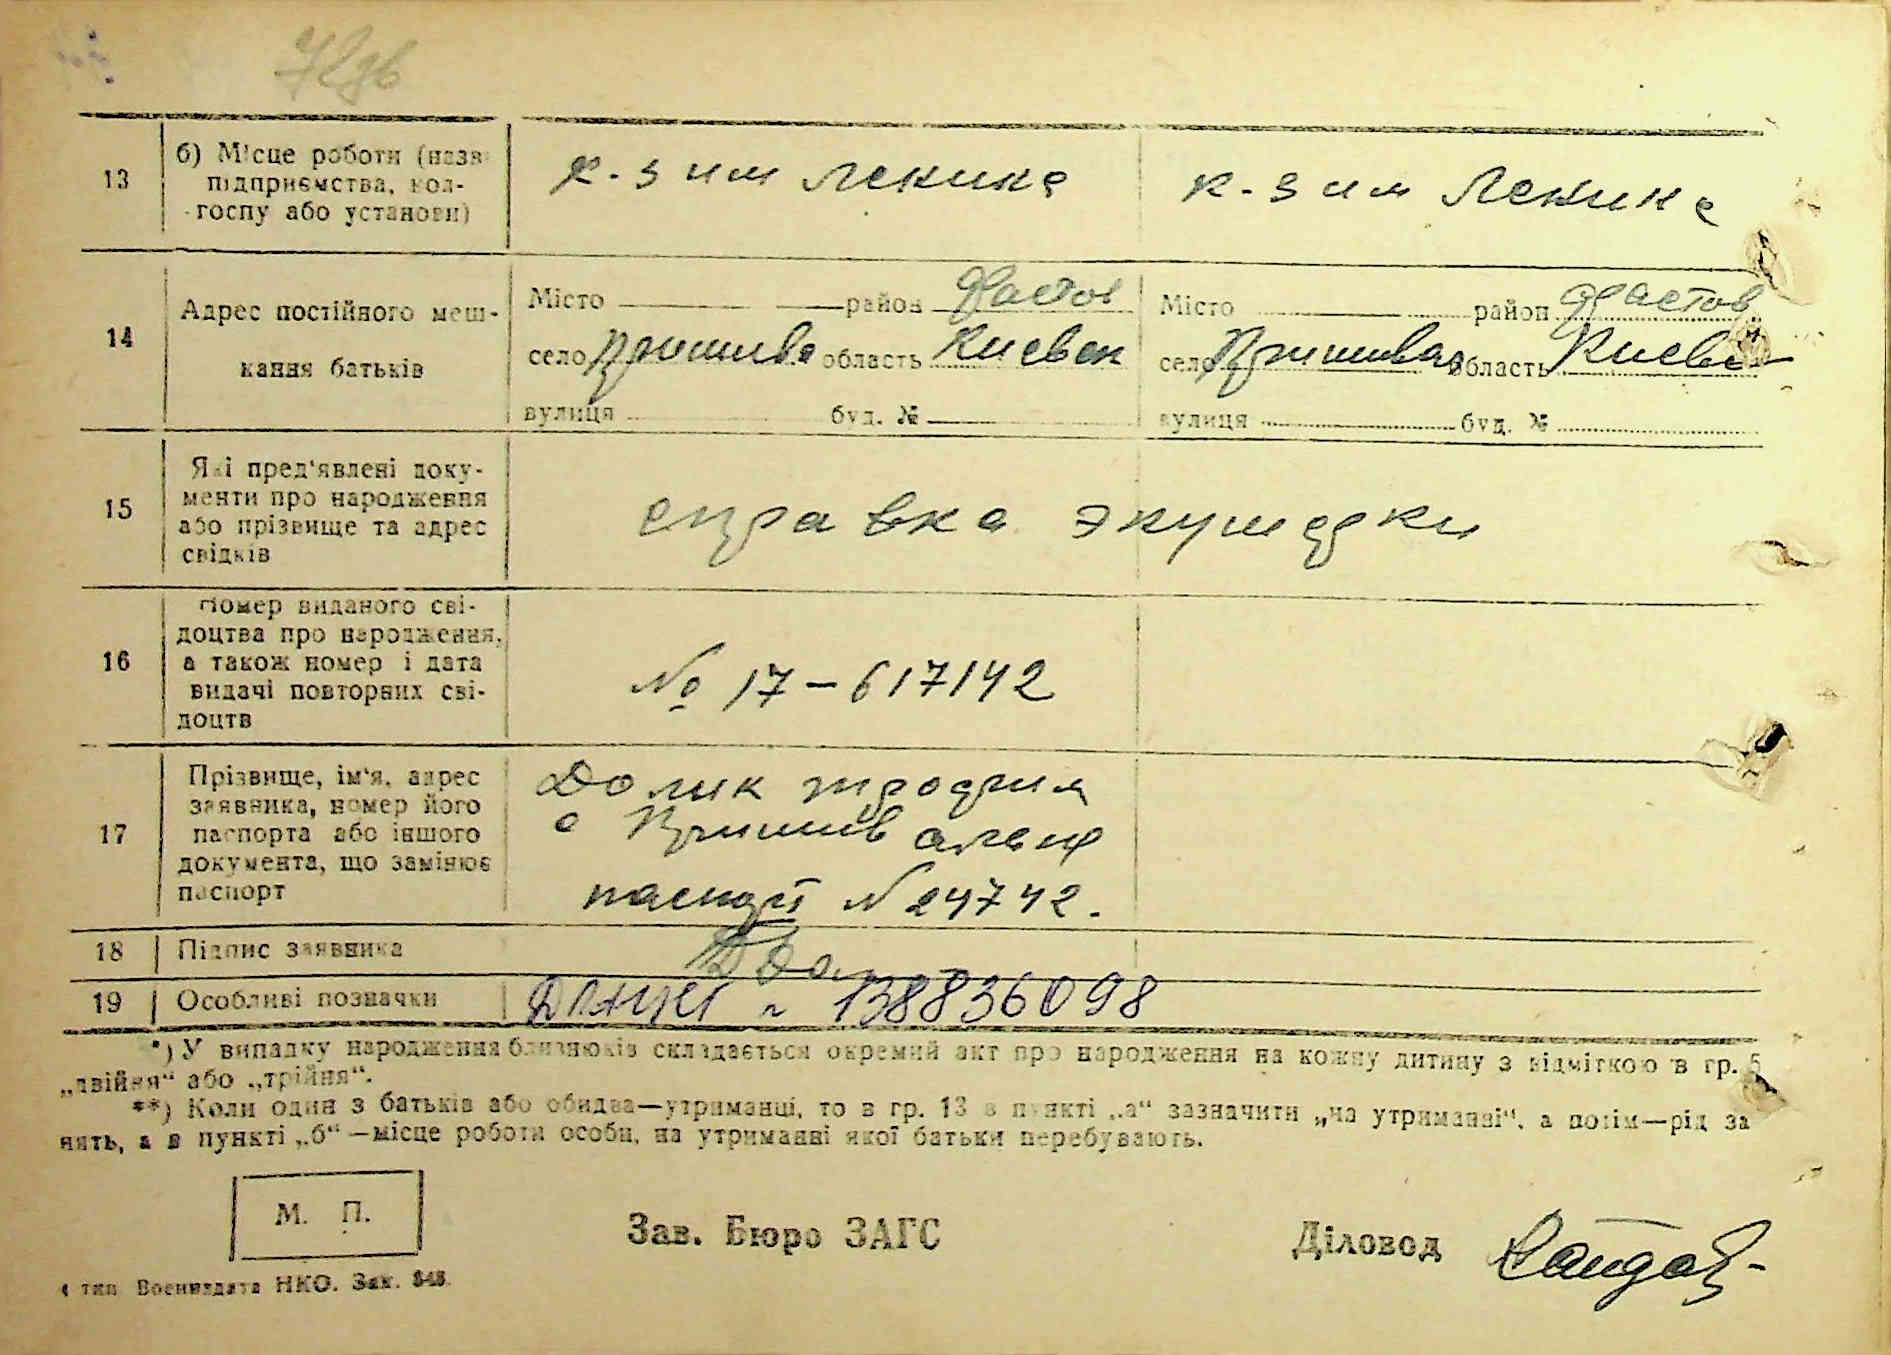 72зв
13
б) Місце роботи (назв
підприємства, кол-
госпу або установи)
к-з им Ленина
к-з им Ленина
14
Адрес постійного меш-
кання батьків
Місто район Фастов
село Пришива область Киевск
вулиця буд. №
Місто район Фастов
село Пришива область Киевс
вулиця буд. №
15
Які пред'явлені доку-
менти про народження
або прізвище та адрес
свідків
справка экушерки
16
Номер виданого сві-
доцтва про народження,
а також номер і дата
видачі повторних сві-
доцтв
№ 17-617142
17
Прізвище, ім'я, адрес
заявника, номер його
паспорта або іншого
документа, що замінює
паспорт
Долик
с
паспорт N 24742.
18 Підпис заявника
19 Особливі позначки
N 138836098
*) У випадку народження близнюків складається окремий акт про народження на кожну дитину з відміткою в гр. 5
„двійня“ або „трійня“.
**) Коли один з батьків або обидва—утриманці, то в гр. 13 в пункті „а“ зазначити „на утриманні“, а потім—рід за
нять, а в пункті „б“—місце роботи особи, на утриманні якої батьки перебувають.
М. П.
Зав. Бюро ЗАГС
Діловод
4 тип Воениздата НКО. Зак. 848.